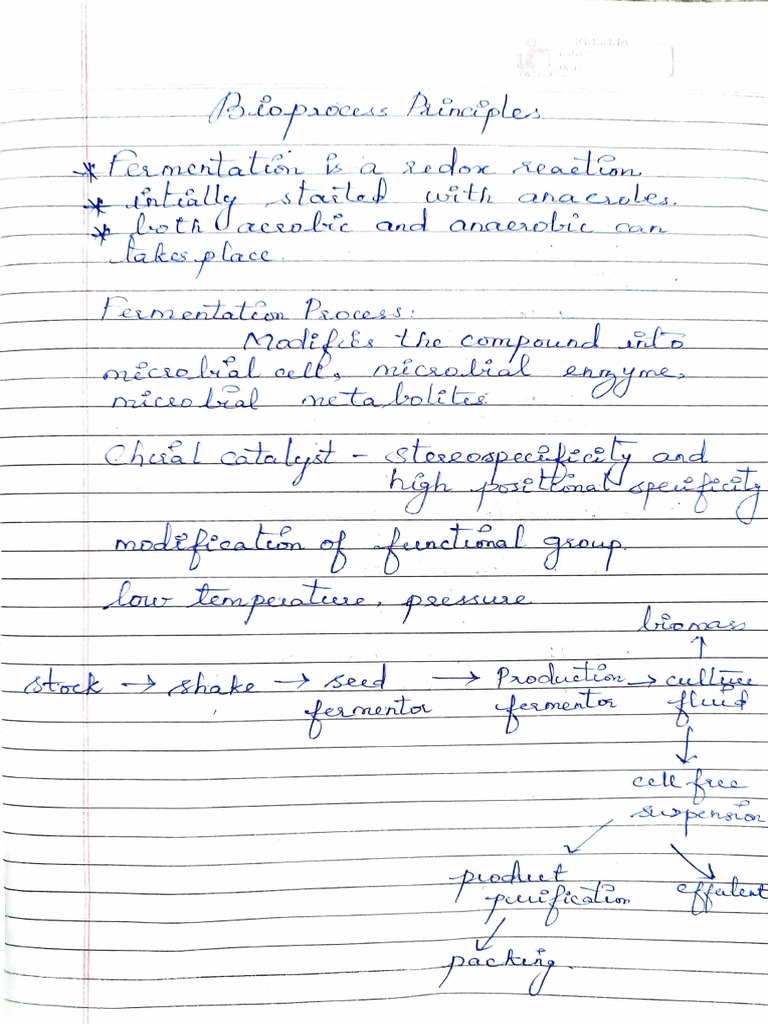 Bioprocess Principles
* Fermentation is a redox reaction.
* intially started with anaerobes.
* both aerobic and anaerobic can
takes place.
Fermentation Process:
Modifies the compound into
microbial cell, microbial enzyme,
microbial metabolites
Chiral catalyst - stereospecificity and
high positional specificity
modification of functional group.
low temperature, pressure
biomass
stock → shake → seed → Production → culture
fermentor fermentor fluid
cell free
suspension
product effulent
purification
packing